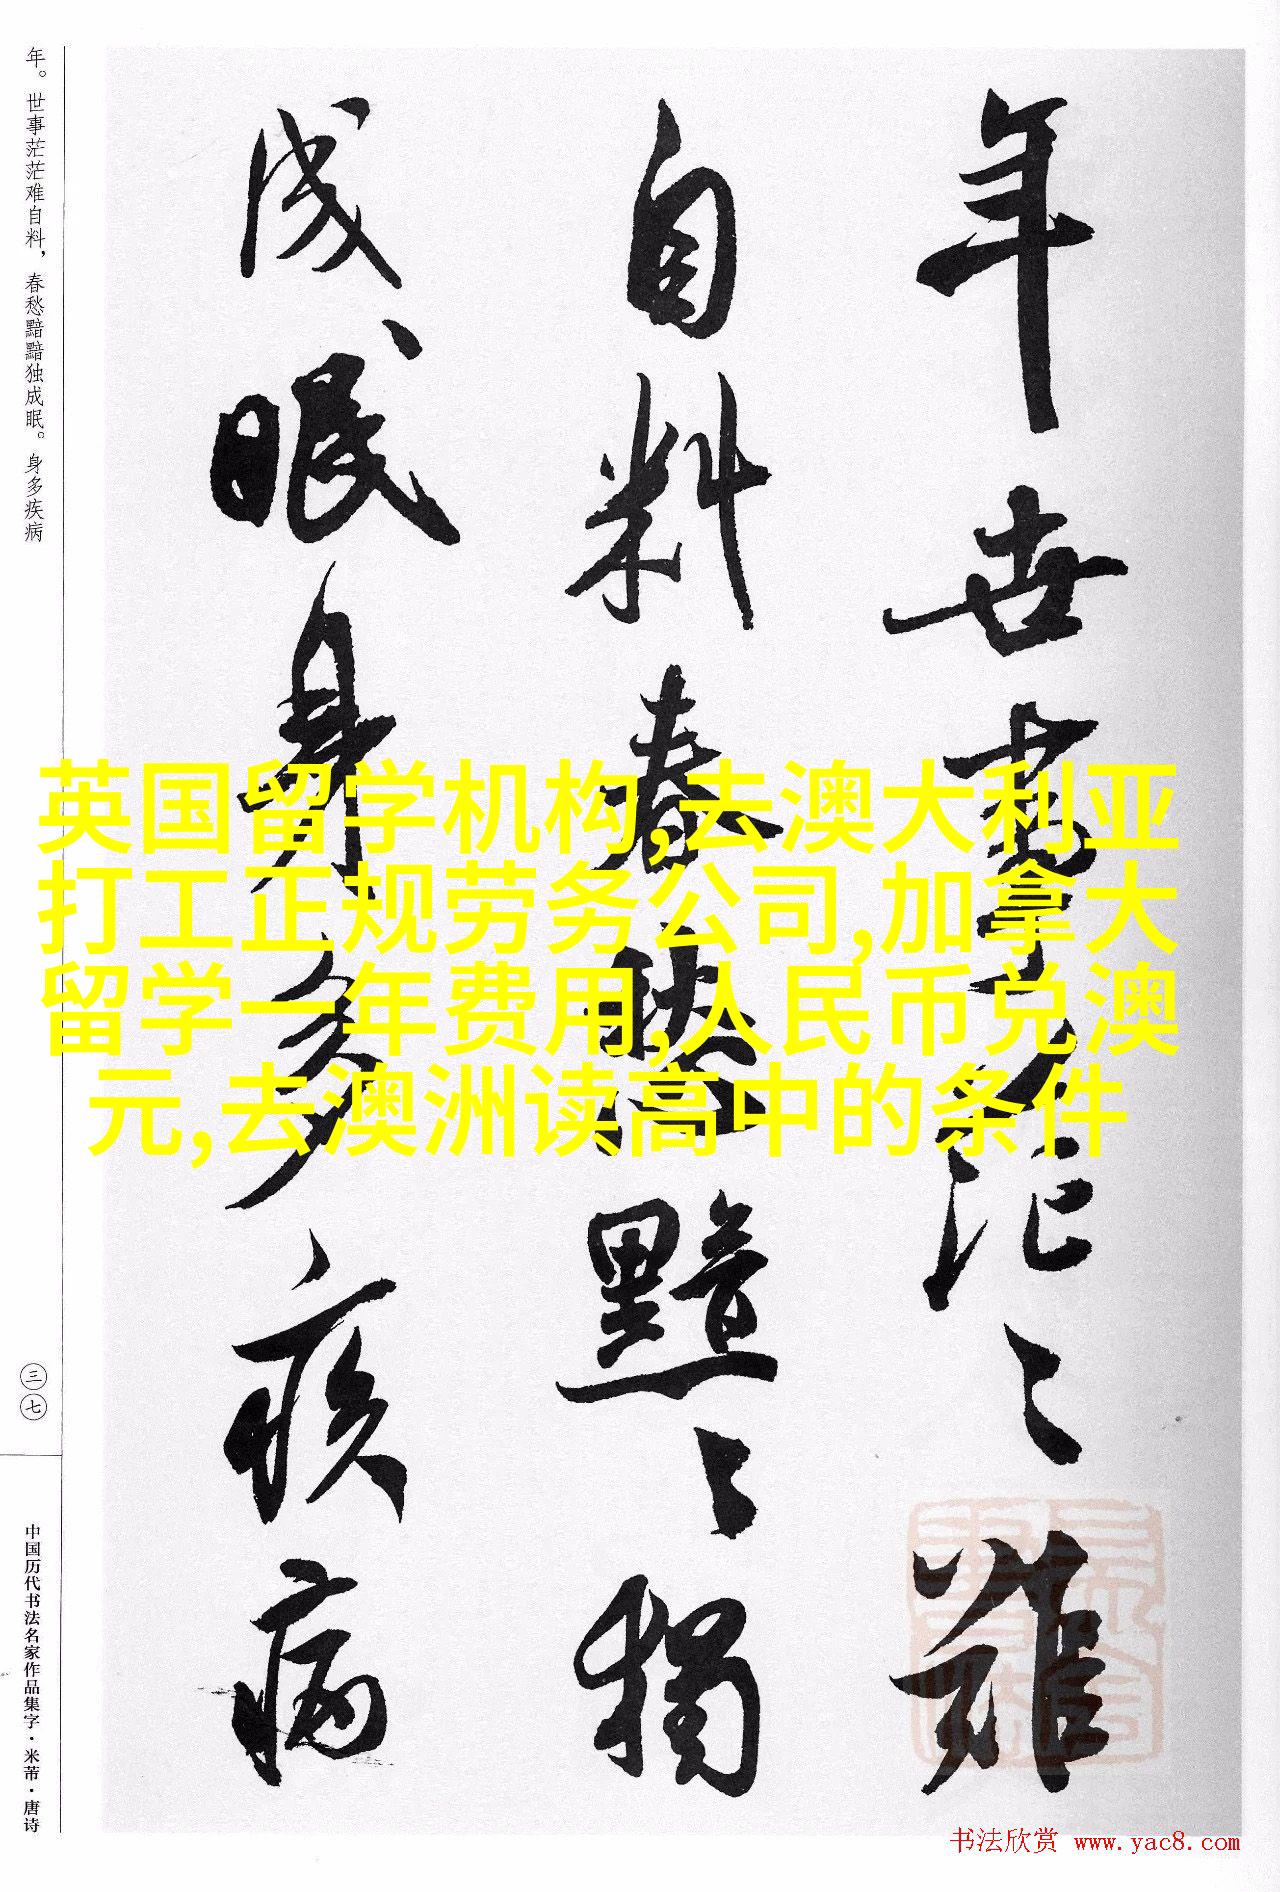 年世事茫々难
自料春愁黯々独
成眠身多疾病
年。世事茫茫难自料，春愁黯黯独成眠。身多疾病
三七
中国历代书法名家作品集字·米芾·唐诗
英国留学机构,去澳大利亚
打工正规劳务公司,加拿大
留学一年费用,人民币兑澳
元,去澳洲读高中的条件
书法欣赏 www.yac8.com